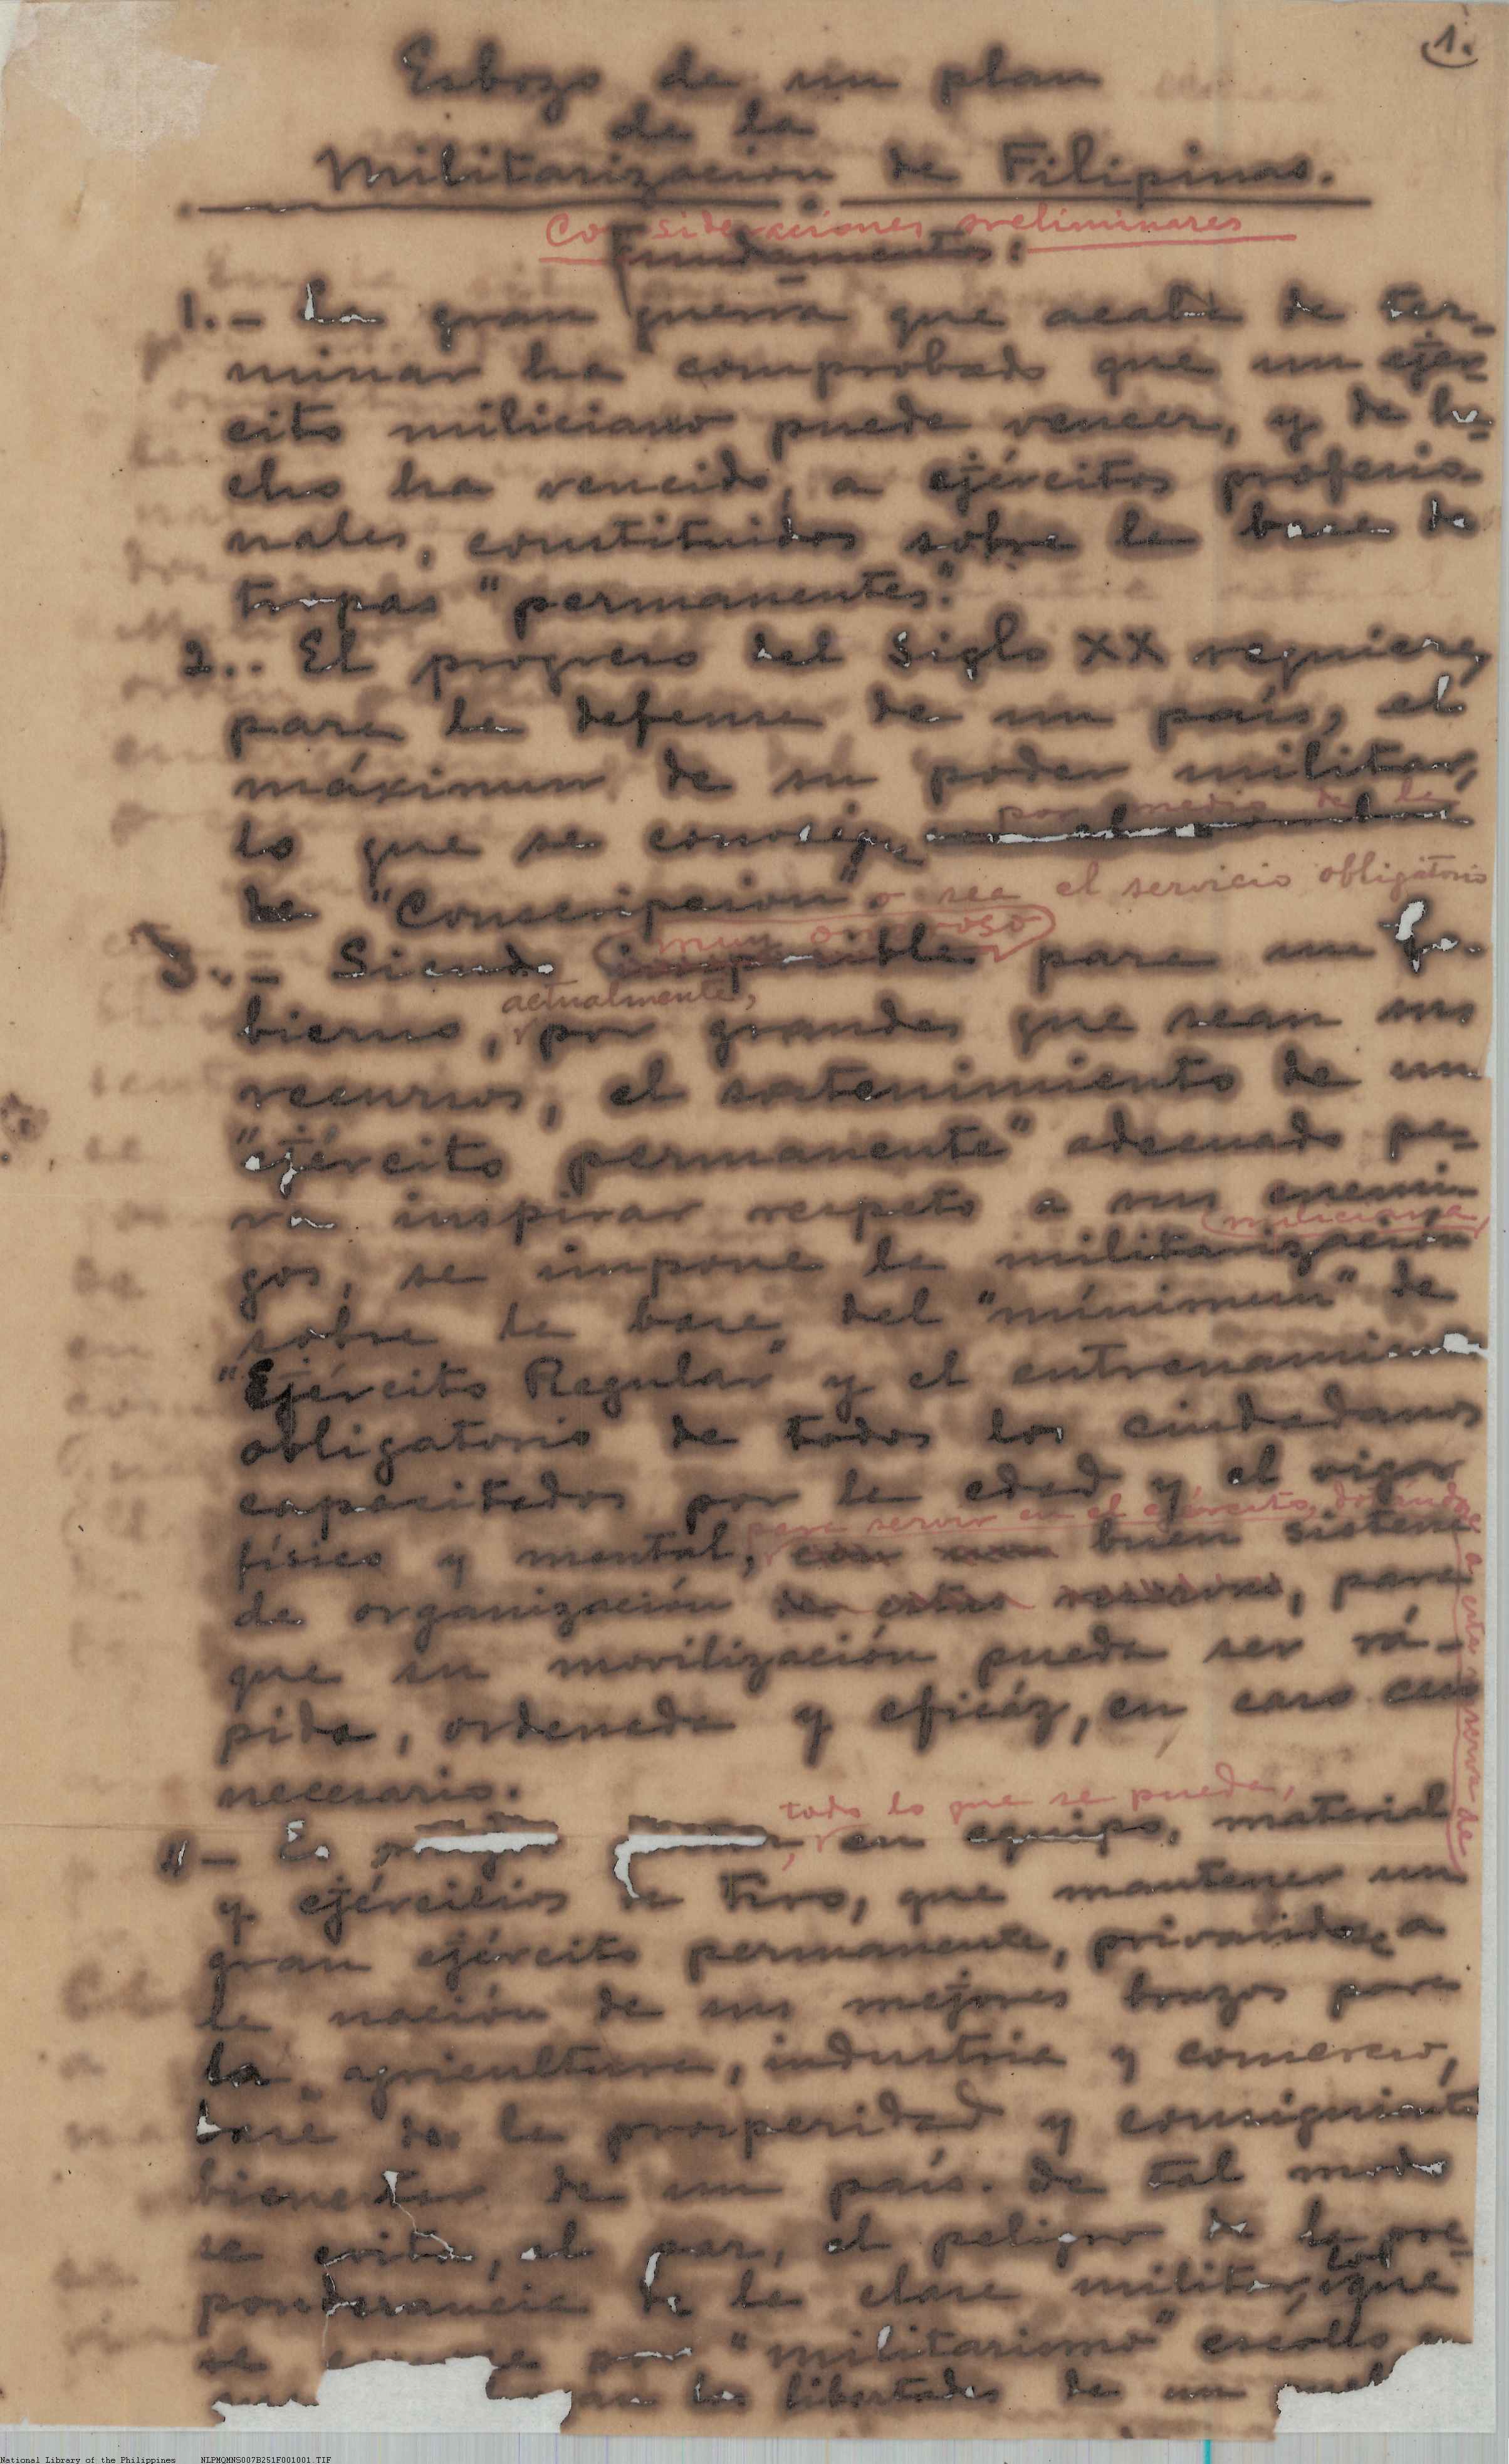 1.
Esbozo de un plan
de la
Militarizacion de Filipinas.
Consideraciones preliminares
Fundamentos:
1.- La gran guerra que acaba de ter-
minar ha comprobado que un ejér-
cito miliciano puede vencer, y de he-
cho ha vencido, a ejércitos profesio-
nales, constituidos sobre la base de
tropas "permanentes."
2.- El progreso del Siglo XX requiere,
para la defensa de un país, el
máximum de su poder militar,
por medio de la
lo que se consigue
de "Conscripcion" o sea el servicio obligatorio
muy oneroso
3.- Siendo imposible para un Go-
actualmente,
bierno, por grandes que sean sus
recursos, el sostenimiento de un
"ejército permanente" adecuado pa-
ra inspirar respeto a sus enemi-
miliciana
gos, se impone la militarización
sobre la base del "mínimum" de
"Ejército Regular" y el entrenamien
obligatorio de todos los ciudadanos
capacitados por la edad y el vigor
para servir en el ejército, dotando
físico y mental, con un buen sistema
a esta reserva de
de organización de estas reservas, para
que su movilización pueda ser rá-
pida, ordenada y eficáz, en caso
necesario.
todo lo que se pueda,
4- Es en equipo, material
y ejércicios de tiro, que mantener un
gran ejército permanente, privandole a
la nación de sus mejores brazos para
la agricultura, industria y comercio,
base de la prosperidad y consiguiente
bienestar de un país. De tal modo
se evita, al par, el peligro de la pre-
ponderancia de la clase militar, lo que
se por "militarismo" escollo
las libertades de un
National Library of the Philippines NLPMQMNS007B251F001001.TIF